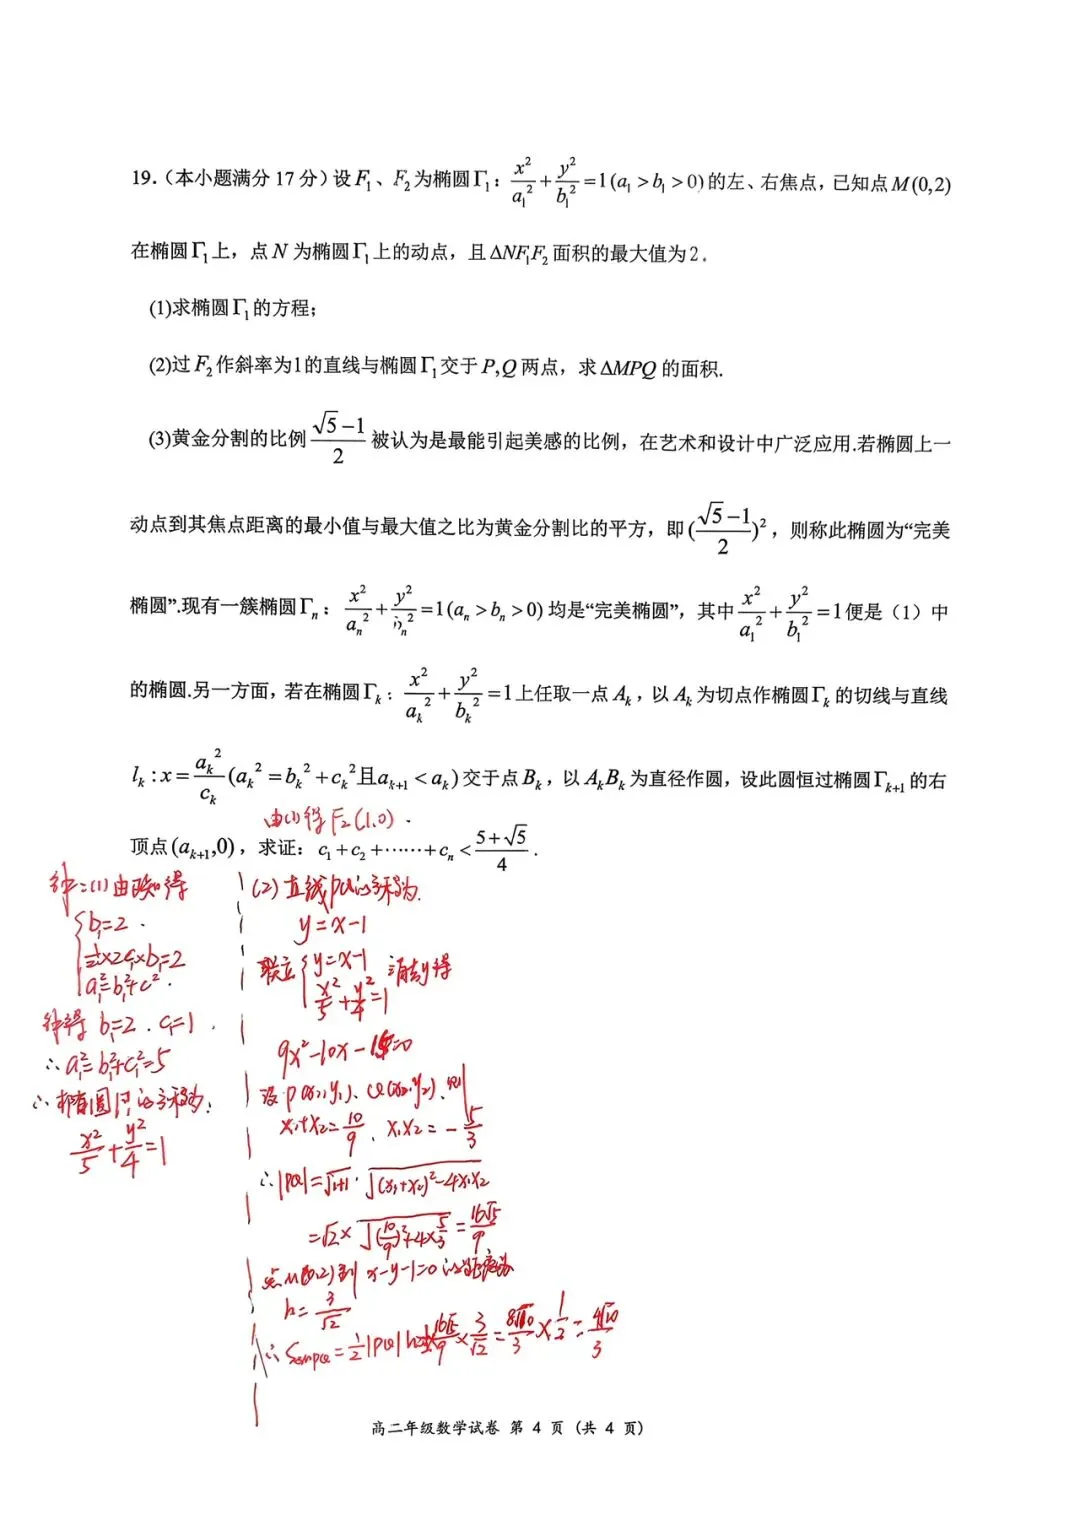 19.（本小题满分 17 分）设 F₁、F₂ 为椭圆 Γ₁：x²/a₁² + y²/b₁² = 1 (a₁ > b₁ > 0) 的左、右焦点，已知点 M(0,2)
在椭圆 Γ₁ 上，点 N 为椭圆 Γ₁ 上的动点，且 ΔNF₁F₂ 面积的最大值为 2．
(1)求椭圆 Γ₁ 的方程；
(2)过 F₂ 作斜率为1的直线与椭圆 Γ₁ 交于 P,Q 两点，求 ΔMPQ 的面积.
(3)黄金分割的比例 (√5−1)/2 被认为是最能引起美感的比例，在艺术和设计中广泛应用.若椭圆上一
动点到其焦点距离的最小值与最大值之比为黄金分割比的平方，即 ((√5−1)/2)²，则称此椭圆为“完美
椭圆”.现有一簇椭圆 Γₙ：x²/aₙ² + y²/bₙ² = 1 (aₙ > bₙ > 0) 均是“完美椭圆”，其中 x²/a₁² + y²/b₁² = 1 便是（1）中
的椭圆.另一方面，若在椭圆 Γₖ：x²/aₖ² + y²/bₖ² = 1 上任取一点 Aₖ，以 Aₖ 为切点作椭圆 Γₖ 的切线与直线
lₖ : x = aₖ²/cₖ (aₖ² = bₖ² + cₖ² 且 aₖ₊₁ < aₖ) 交于点 Bₖ，以 AₖBₖ 为直径作圆，设此圆恒过椭圆 Γₖ₊₁ 的右
顶点 (aₖ₊₁,0)，求证：c₁ + c₂ + ⋯⋯ + cₙ < (5+√5)/4 .
由(1)得 F₂(1,0).
解：(1)由已知得
b₁=2.
½×2c₁×b₁=2
a₁²=b₁²+c₁².
解得 b₁=2 . c₁=1 .
∴ a₁²=b₁²+c₁²=5
∴ 椭圆Γ₁的方程为:
x²/5 + y²/4 = 1
(2) 直线PQ的方程为.
y=x-1
联立 y=x-1 消去y得
x²/5 + y²/4 = 1
9x²-10x-15=0
设 P(x₁,y₁)、Q(x₂,y₂)、则
x₁+x₂=10/9 、x₁x₂=-5/3
∴ |PQ|=√(1+1)·√((x₁+x₂)²-4x₁x₂)
=√2×√((10/9)²+4×5/3)=16√5/9
点M(0,2)到 x-y-1=0的距离为
h=3/√2
∴ S△MPQ=½|PQ|h=½×16√5/9×3/√2=8√10/3×1/2=4√10/3
高二年级数学试卷 第 4 页（共 4 页）